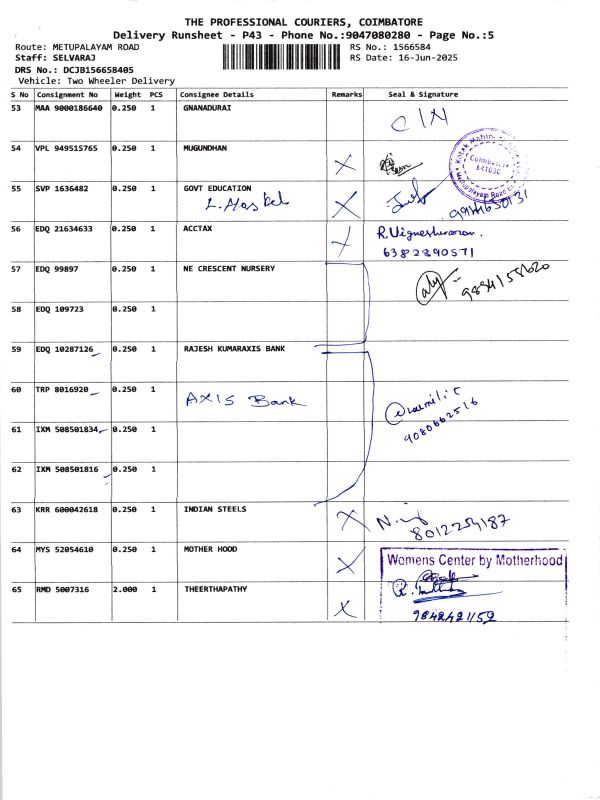 THE PROFESSIONAL COURIERS, COIMBATORE
Delivery Runsheet - P43 - Phone No.:9047080280 - Page No.:5
Route: METUPALAYAM ROAD
RS No.: 1566584
Staff: SELVARAJ
RS Date: 16-Jun-2025
DRS No.: DCJB156658405
Vehicle: Two Wheeler Delivery
S No Consignment No Weight PCS Consignee Details Remarks Seal & Signature
53 MAA 9000186640 0.250 1 GNANADURAI
CIN
54 VPL 949515765 0.250 1 MUGUNDHAN
X
Coimbatore
641030
55 SVP 1636482 0.250 1 GOVT EDUCATION
X
56 EDQ 21634633 0.250 1 ACCTAX
X R.Vigneshwaran.
6382890571
57 EDQ 99897 0.250 1 NE CRESCENT NURSERY
58 EDQ 109723 0.250 1
59 EDQ 10287126 0.250 1 RAJESH KUMARAXIS BANK
60 TRP 8016920 0.250 1
AXIS Bank
61 IXM 508501834 0.250 1
9080662516
62 IXM 508501816 0.250 1
63 KRR 600042618 0.250 1 INDIAN STEELS
X
8012254187
64 MYS 52054610 0.250 1 MOTHER HOOD
X Womens Center by Motherhood
65 RMD 5007316 2.000 1 THEERTHAPATHY
X 9842421152